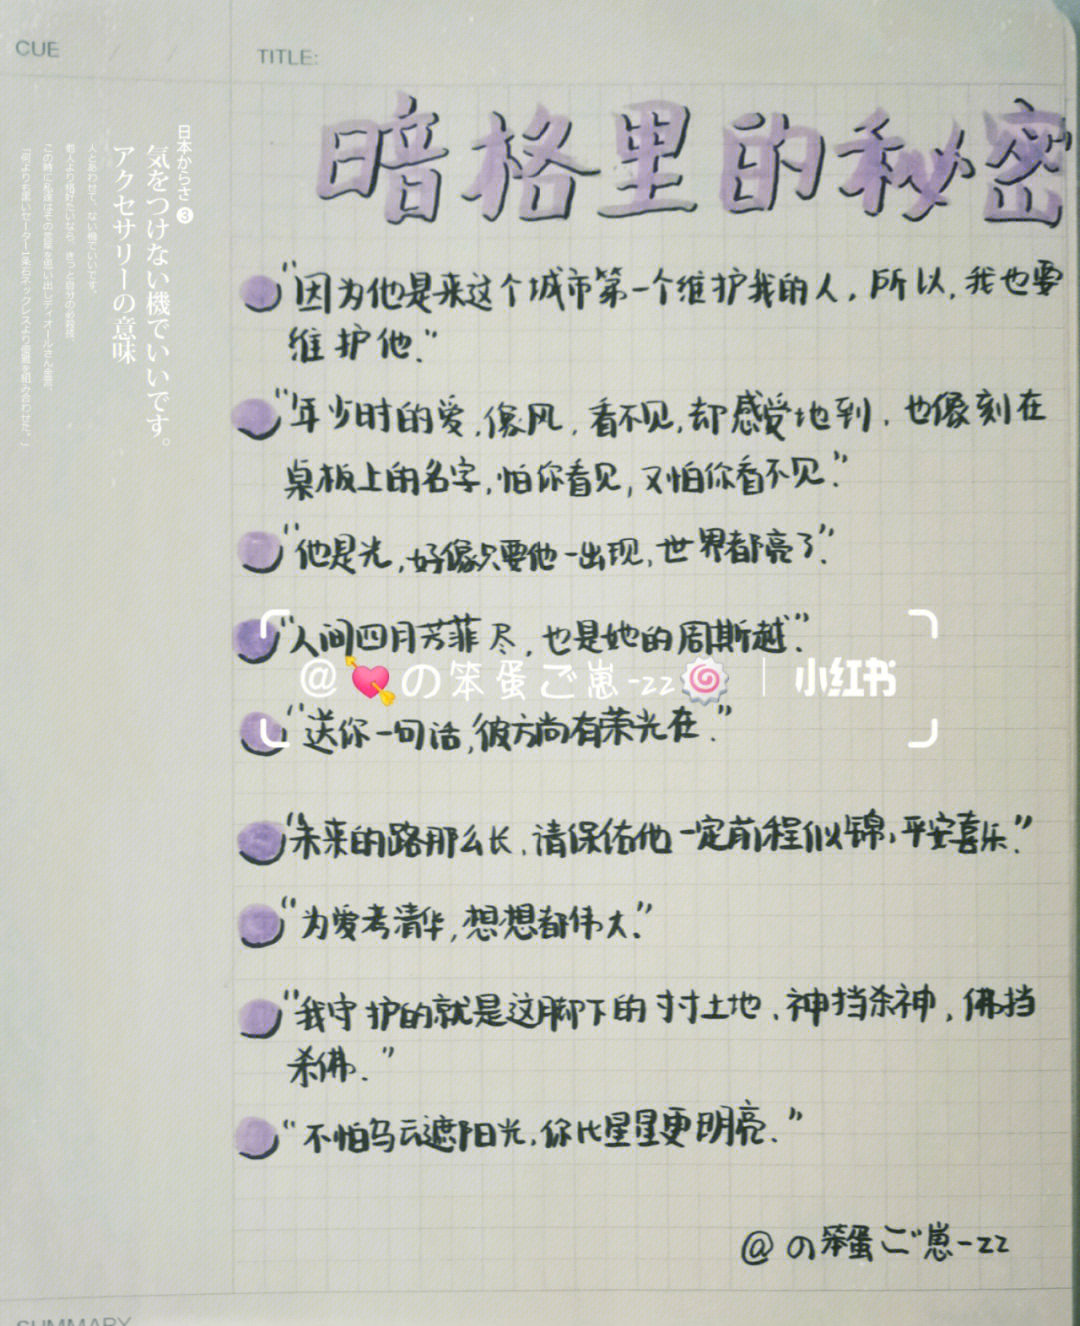 CUE
TITLE:
暗格里的秘密
日本からさ ❸
気をつけない機でいいです。
アクセサリーの意味
"因为他是来这个城市第一个维护我的人，所以，我也要
维护他."
"年少时的爱，像风，看不见，却感受地到，也像刻在
桌板上的名字，怕你看见，又怕你看不见."
"他是光，好像只要他一出现，世界都亮了".
"人间四月芳菲尽，也是她的周斯越".
@💘の笨蛋ご崽-zz🍥｜小红书
"送你一句话，彼方尚有荣光在."
"未来的路那么长，请保佑他一定前程似锦，平安喜乐."
"为爱考清华，想想都伟大."
"我守护的就是这脚下的寸寸土地，神挡杀神，佛挡
杀佛."
"不怕乌云遮阳光，你比星星更明亮."
@の笨蛋ご崽-zz
SUMMARY